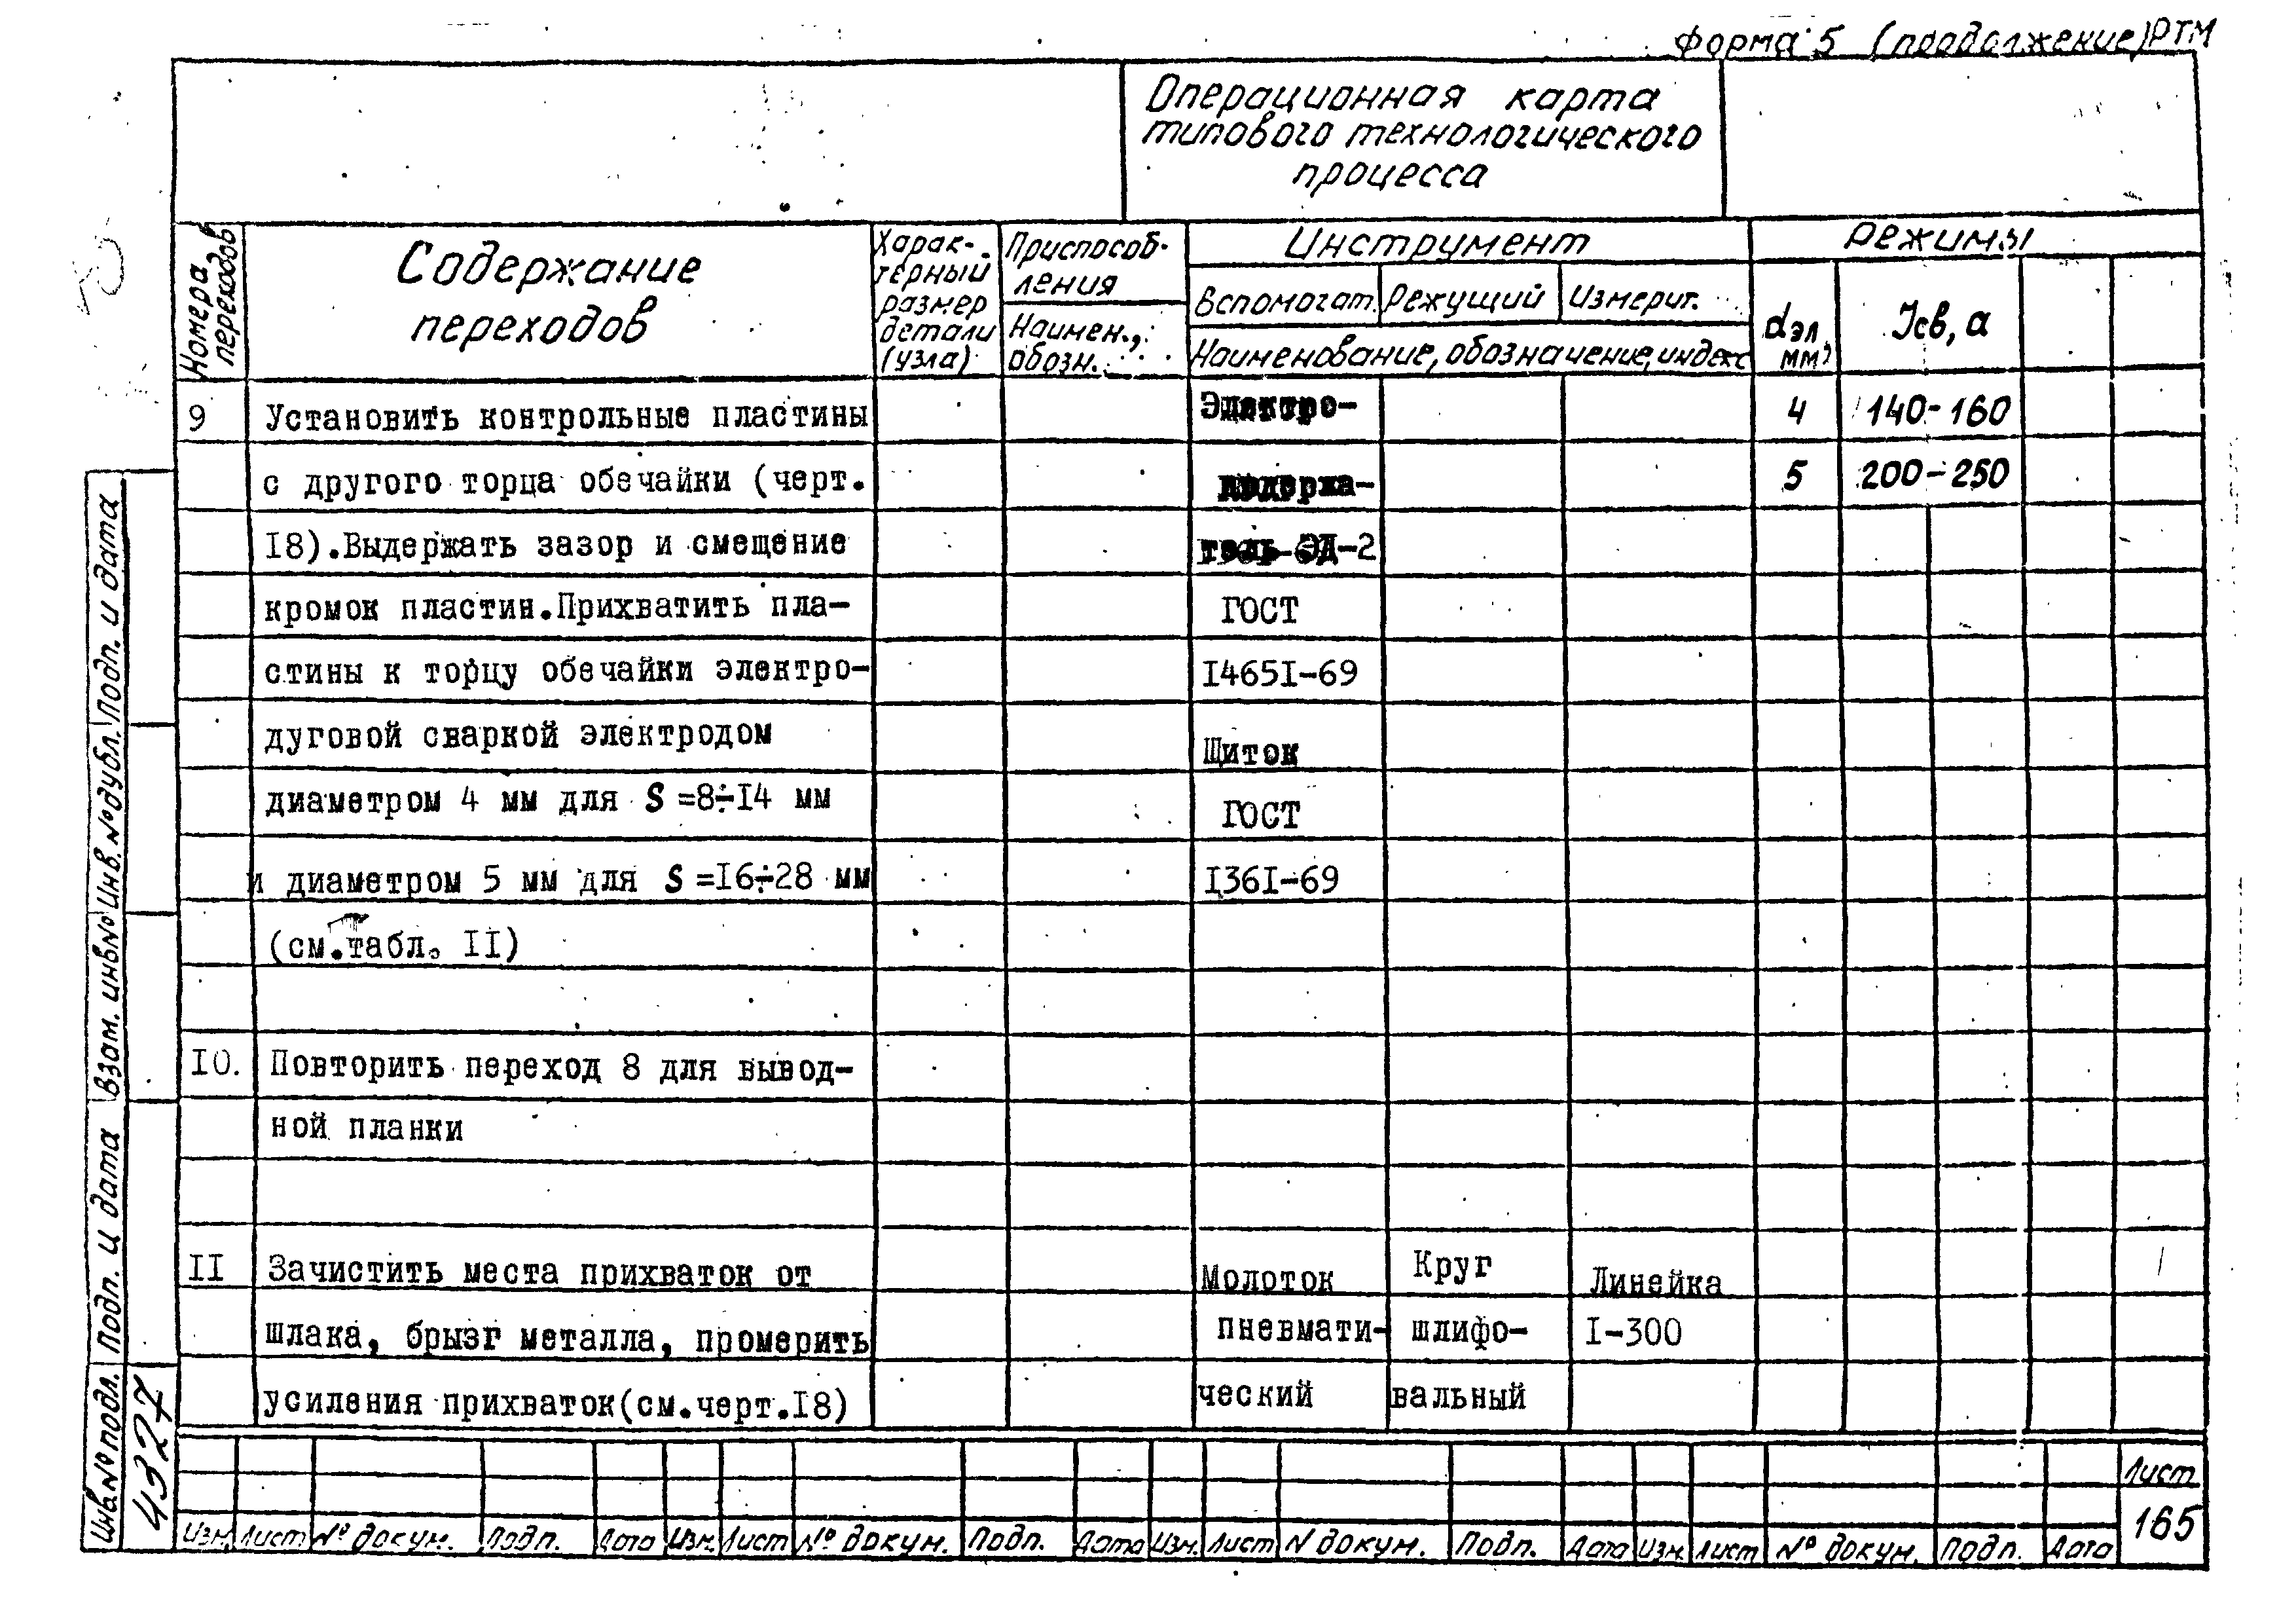 Форма 5 (продолжение) РТМ
Операционная карта
типового технологического
процесса
Номера
переходов
Содержание
переходов
Харак-
терный
размер
детали
(узла)
Приспособ-
ления
Наимен.,
обозн.
Инструмент
Вспомогат. Режущий Измерит.
Наименование, обозначение, индекс
Режимы
dэл, мм
Iсв, а
9 Установить контрольные пластины Электро- 4 140-160
с другого торца обечайки (черт. держа- 5 200-250
I8).Выдержать зазор и смещение тель ЭД-2
кромок пластин.Прихватить пла- ГОСТ
стины к торцу обечайки электро- I465I-69
дуговой сваркой электродом Щиток
диаметром 4 мм для S =8÷I4 мм ГОСТ
и диаметром 5 мм для S =I6÷28 мм I36I-69
(см.табл. II)
I0. Повторить переход 8 для вывод-
ной планки
II Зачистить места прихваток от Молоток Круг Линейка
шлака, брызг металла, промерить пневмати- шлифо- I-300
усиления прихваток(см.черт.I8) ческий вальный
Инв.№подл. Подп. и дата Взам. инв№ Инв.№дубл. Подп. и дата
4327
Изм. Лист № докум. Подп. Дата Изм. Лист № докум. Подп. Дата Изм. Лист N докум. Подп. Дата Изм. Лист № докум. Подп. Дата
Лист
165